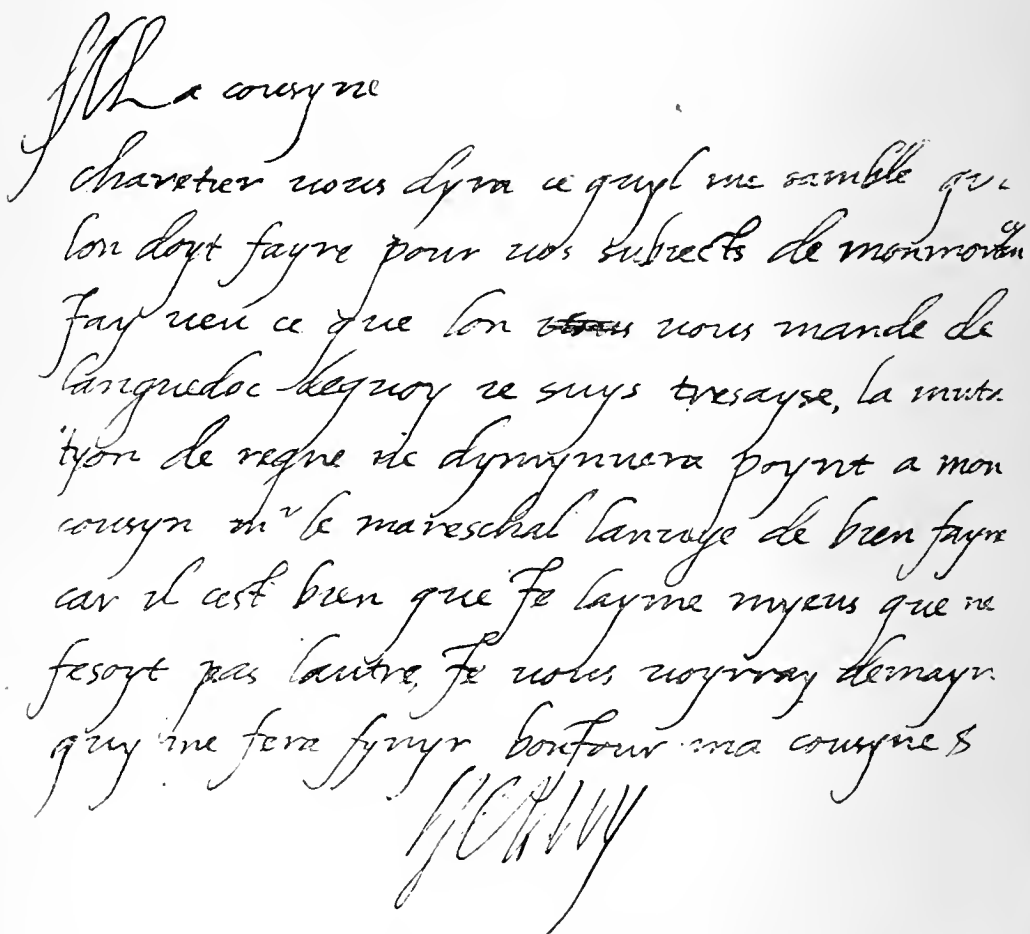 Ma cousyne
charetier uous dyra ce quyl me samble que
lon doyt fayre pour uos subiects de monmorency
Jay ueu ce que lon uous uous mande de
languedoc dequoy ie suys tresayse, la muta
tyon de regne ne dymynuera poynt a mon
cousyn mr le mareschal lanuye de bien fayre
car il cest bien que Je layme myeus que ne
fesoyt pas lautre, Je uous uoyrray demayn
quy me fera fynyr bonJour ma cousyne $
HENRY